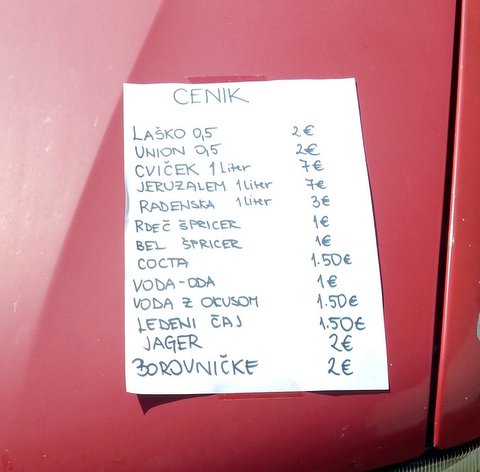 CENIK
LAŠKO 0,5 2€
UNION 0,5 2€
CVIČEK 1 Liter 7€
JERUZALEM 1 Liter 7€
RADENSKA 1 Liter 3€
RDEČ ŠPRICER 1€
BEL ŠPRICER 1€
COCTA 1.50€
VODA-ODA 1€
VODA Z OKUSOM 1.50€
LEDENI ČAJ 1.50€
JAGER 2€
BOROVNIČKE 2€